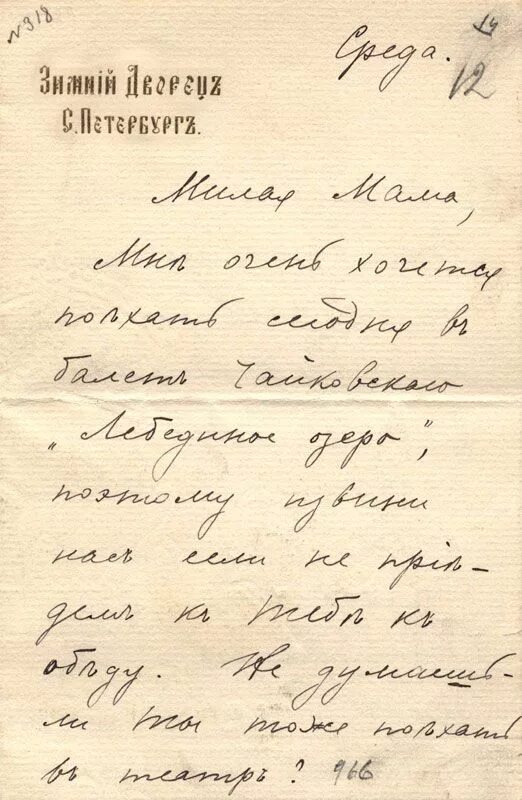 №318
Среда.
IV
12
Зимній Дворецъ
С. Петербургъ.
Милая Мама,
Мнѣ очень хочется
поѣхать сегодня въ
балетъ Чайковскаго
„Лебединое озеро",
поэтому извини
насъ если не пріѣ-
демъ къ тебѣ къ
обѣду. Не думаешь-
ли ты тоже поѣхать
въ театръ? 966